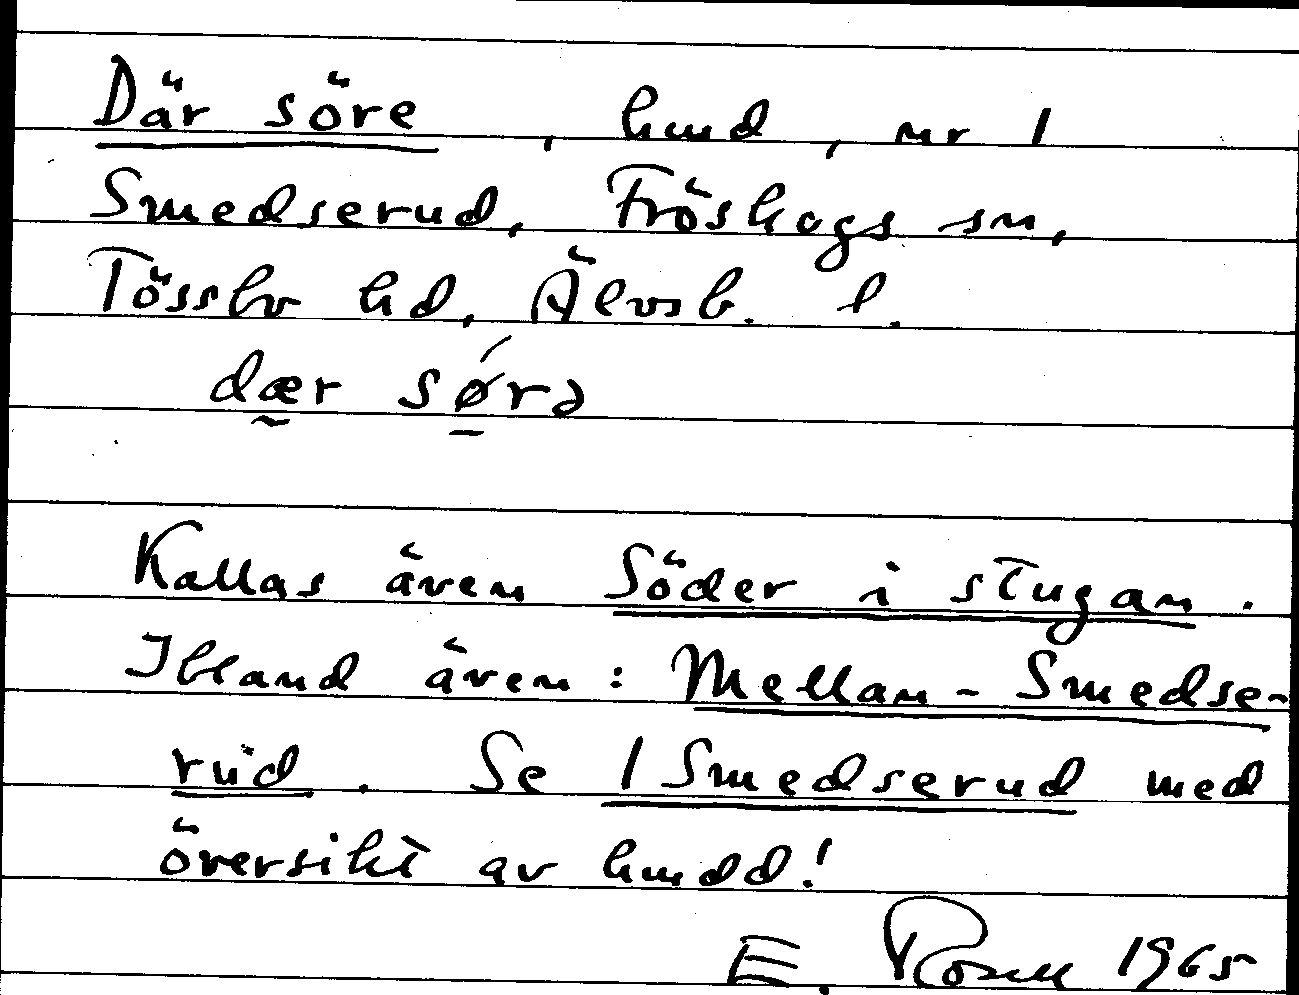 Där söre, hmd, nr 1
Smedserud, Fröskogs sn,
Tössbo hd, Älvsb. l.
dær sørə
Kallas även Söder i stugan.
Ibland även: Mellan-Smedse-
rud. Se 1 Smedserud med
översikt av hmdd!
E. Rosell 1965